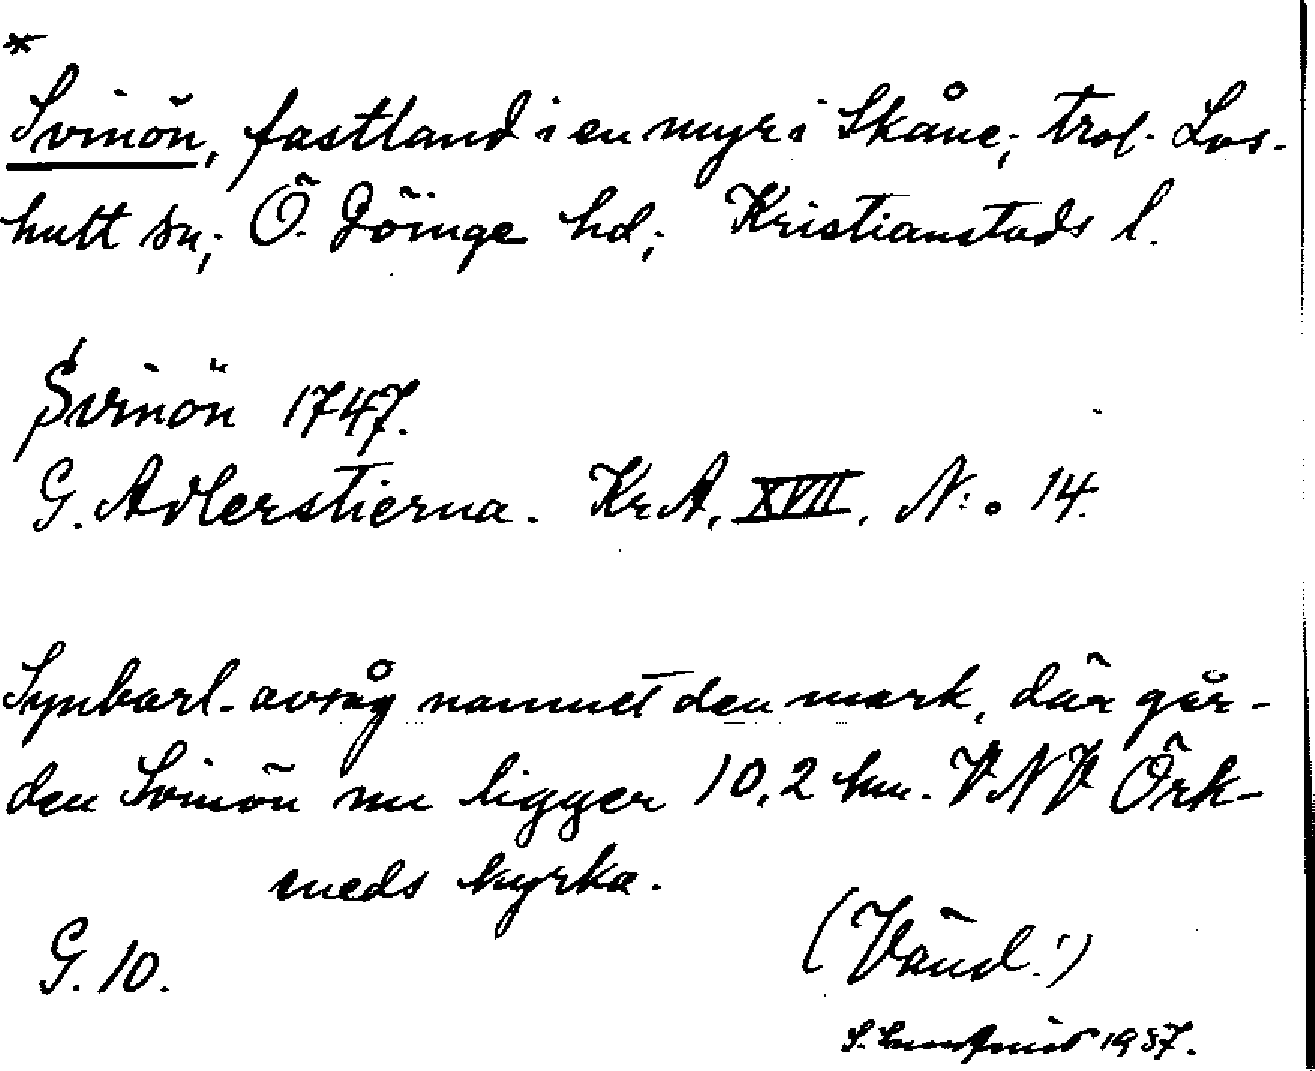 *
Svinön, fastland i en myr i Skåne; trol. Los-
hult sn; Ö. Göinge hd; Kristianstads l.
Svinön 1747.
G. Adlerstierna. Kr.A. XVII. N:o 14.
Synbarl. avsåg namnet den mark, där går-
den Svinön nu ligger 10,2 km. VNV Örk-
neds kyrka.
G. 10.
(Vänd!)
S. Lundqvist 1937.